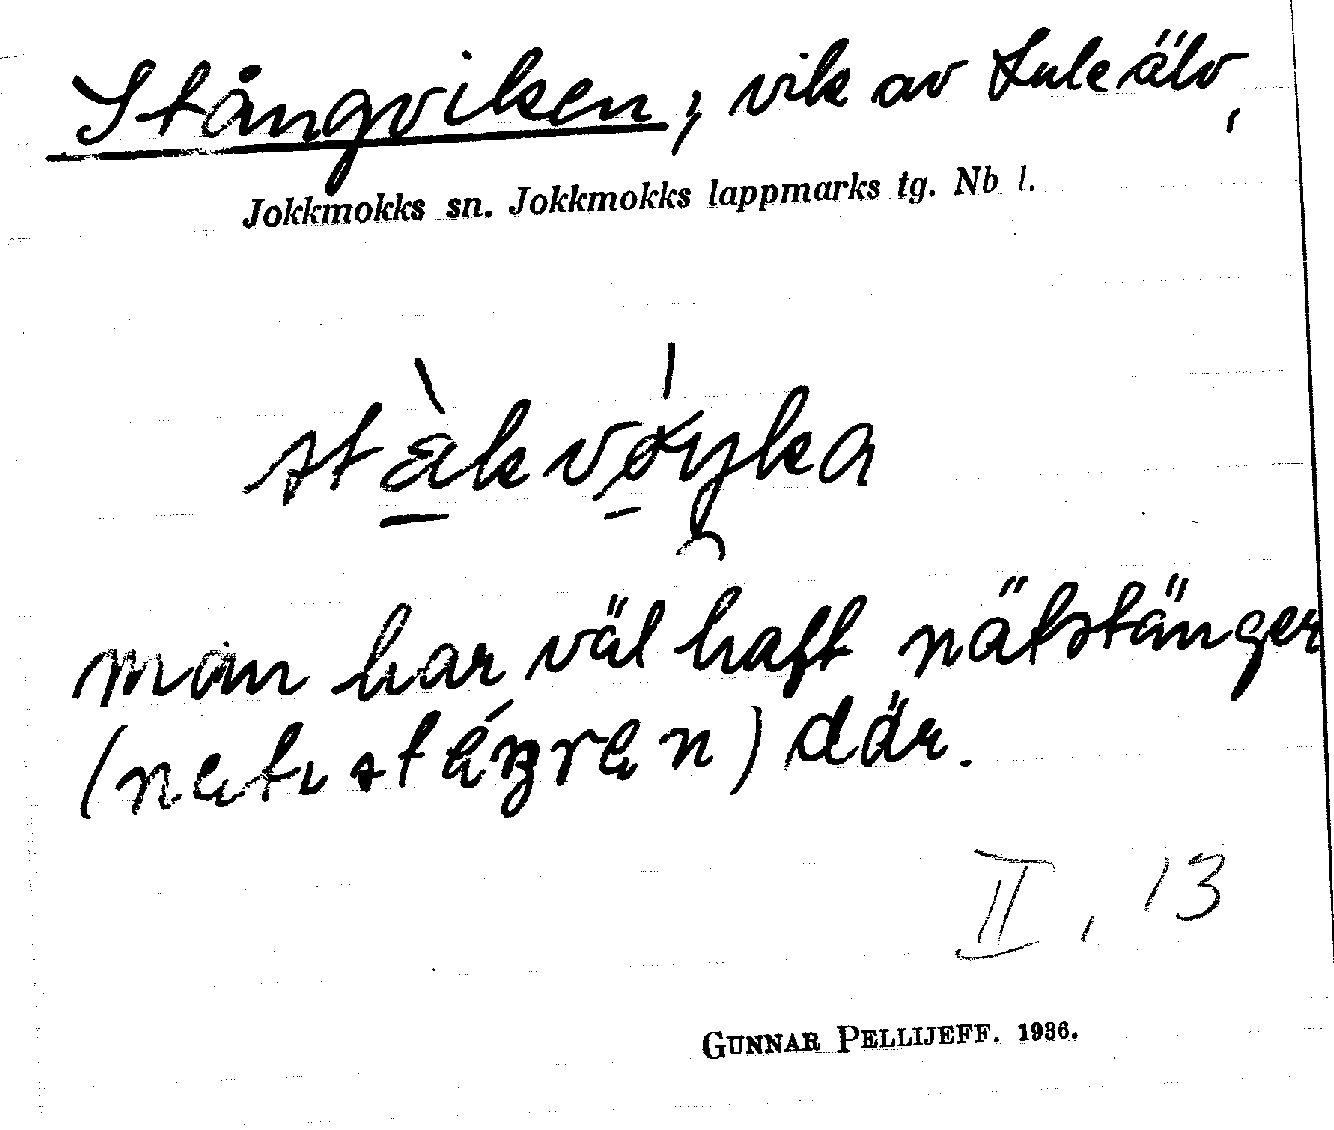 Stångviken, vik av Lule älv,
Jokkmokks sn. Jokkmokks lappmarks tg. Nb l.
man har väl haft nätstänger
där.
II, 13
GUNNAR PELLIJEFF. 1936.